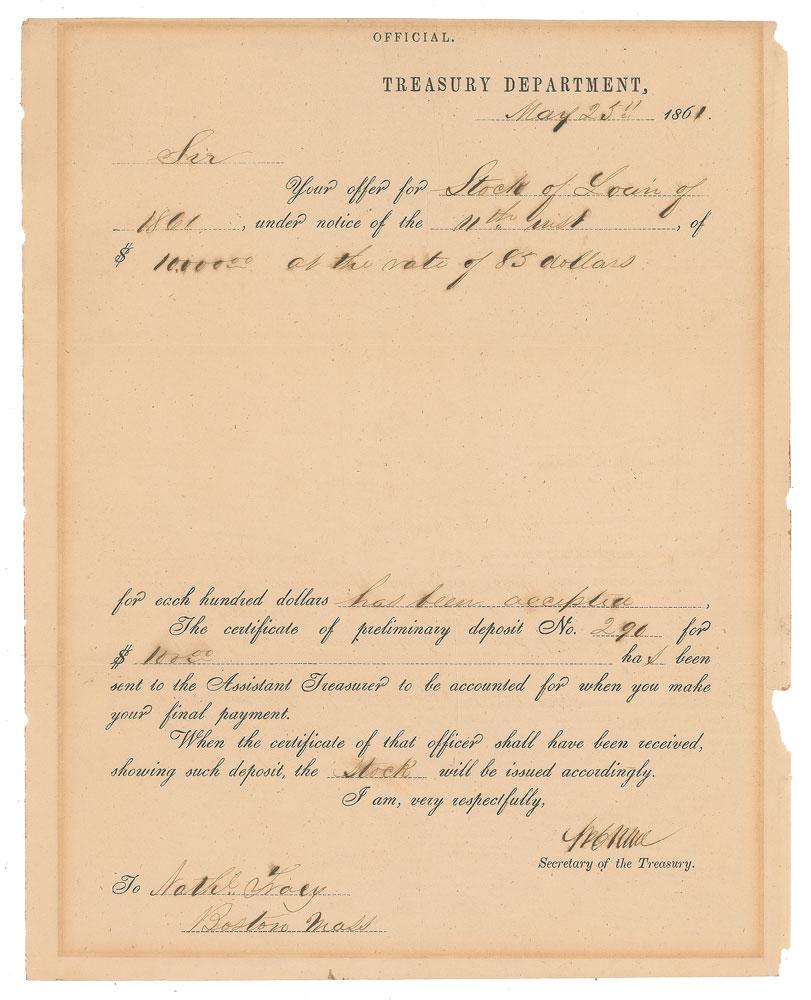 OFFICIAL.
TREASURY DEPARTMENT,
May 25th 1861.
Sir
Your offer for Stock of Loan of
1861, under notice of the 11th inst, of
$ 10.000 00 at the rate of 85 dollars
for each hundred dollars has been accepted,
The certificate of preliminary deposit No. 290 for
$ 100 00 has been
sent to the Assistant Treasurer to be accounted for when you make
your final payment.
When the certificate of that officer shall have been received,
showing such deposit, the stock will be issued accordingly.
I am, very respectfully,
Secretary of the Treasury.
To Nathl. Tracy
Boston Mass